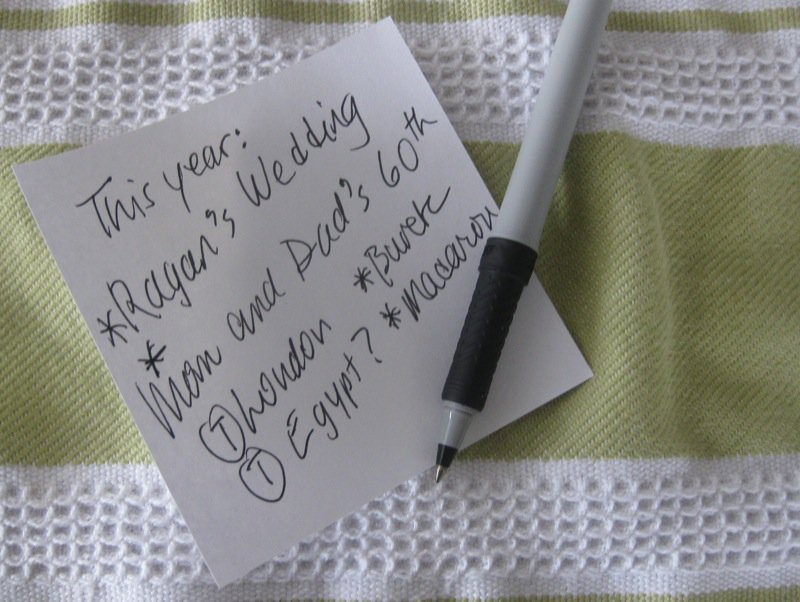 This year:
*Ragan's Wedding
*Mom and Dad's 60th
Ⓣ London *Burek
Ⓣ Egypt? *Macaron